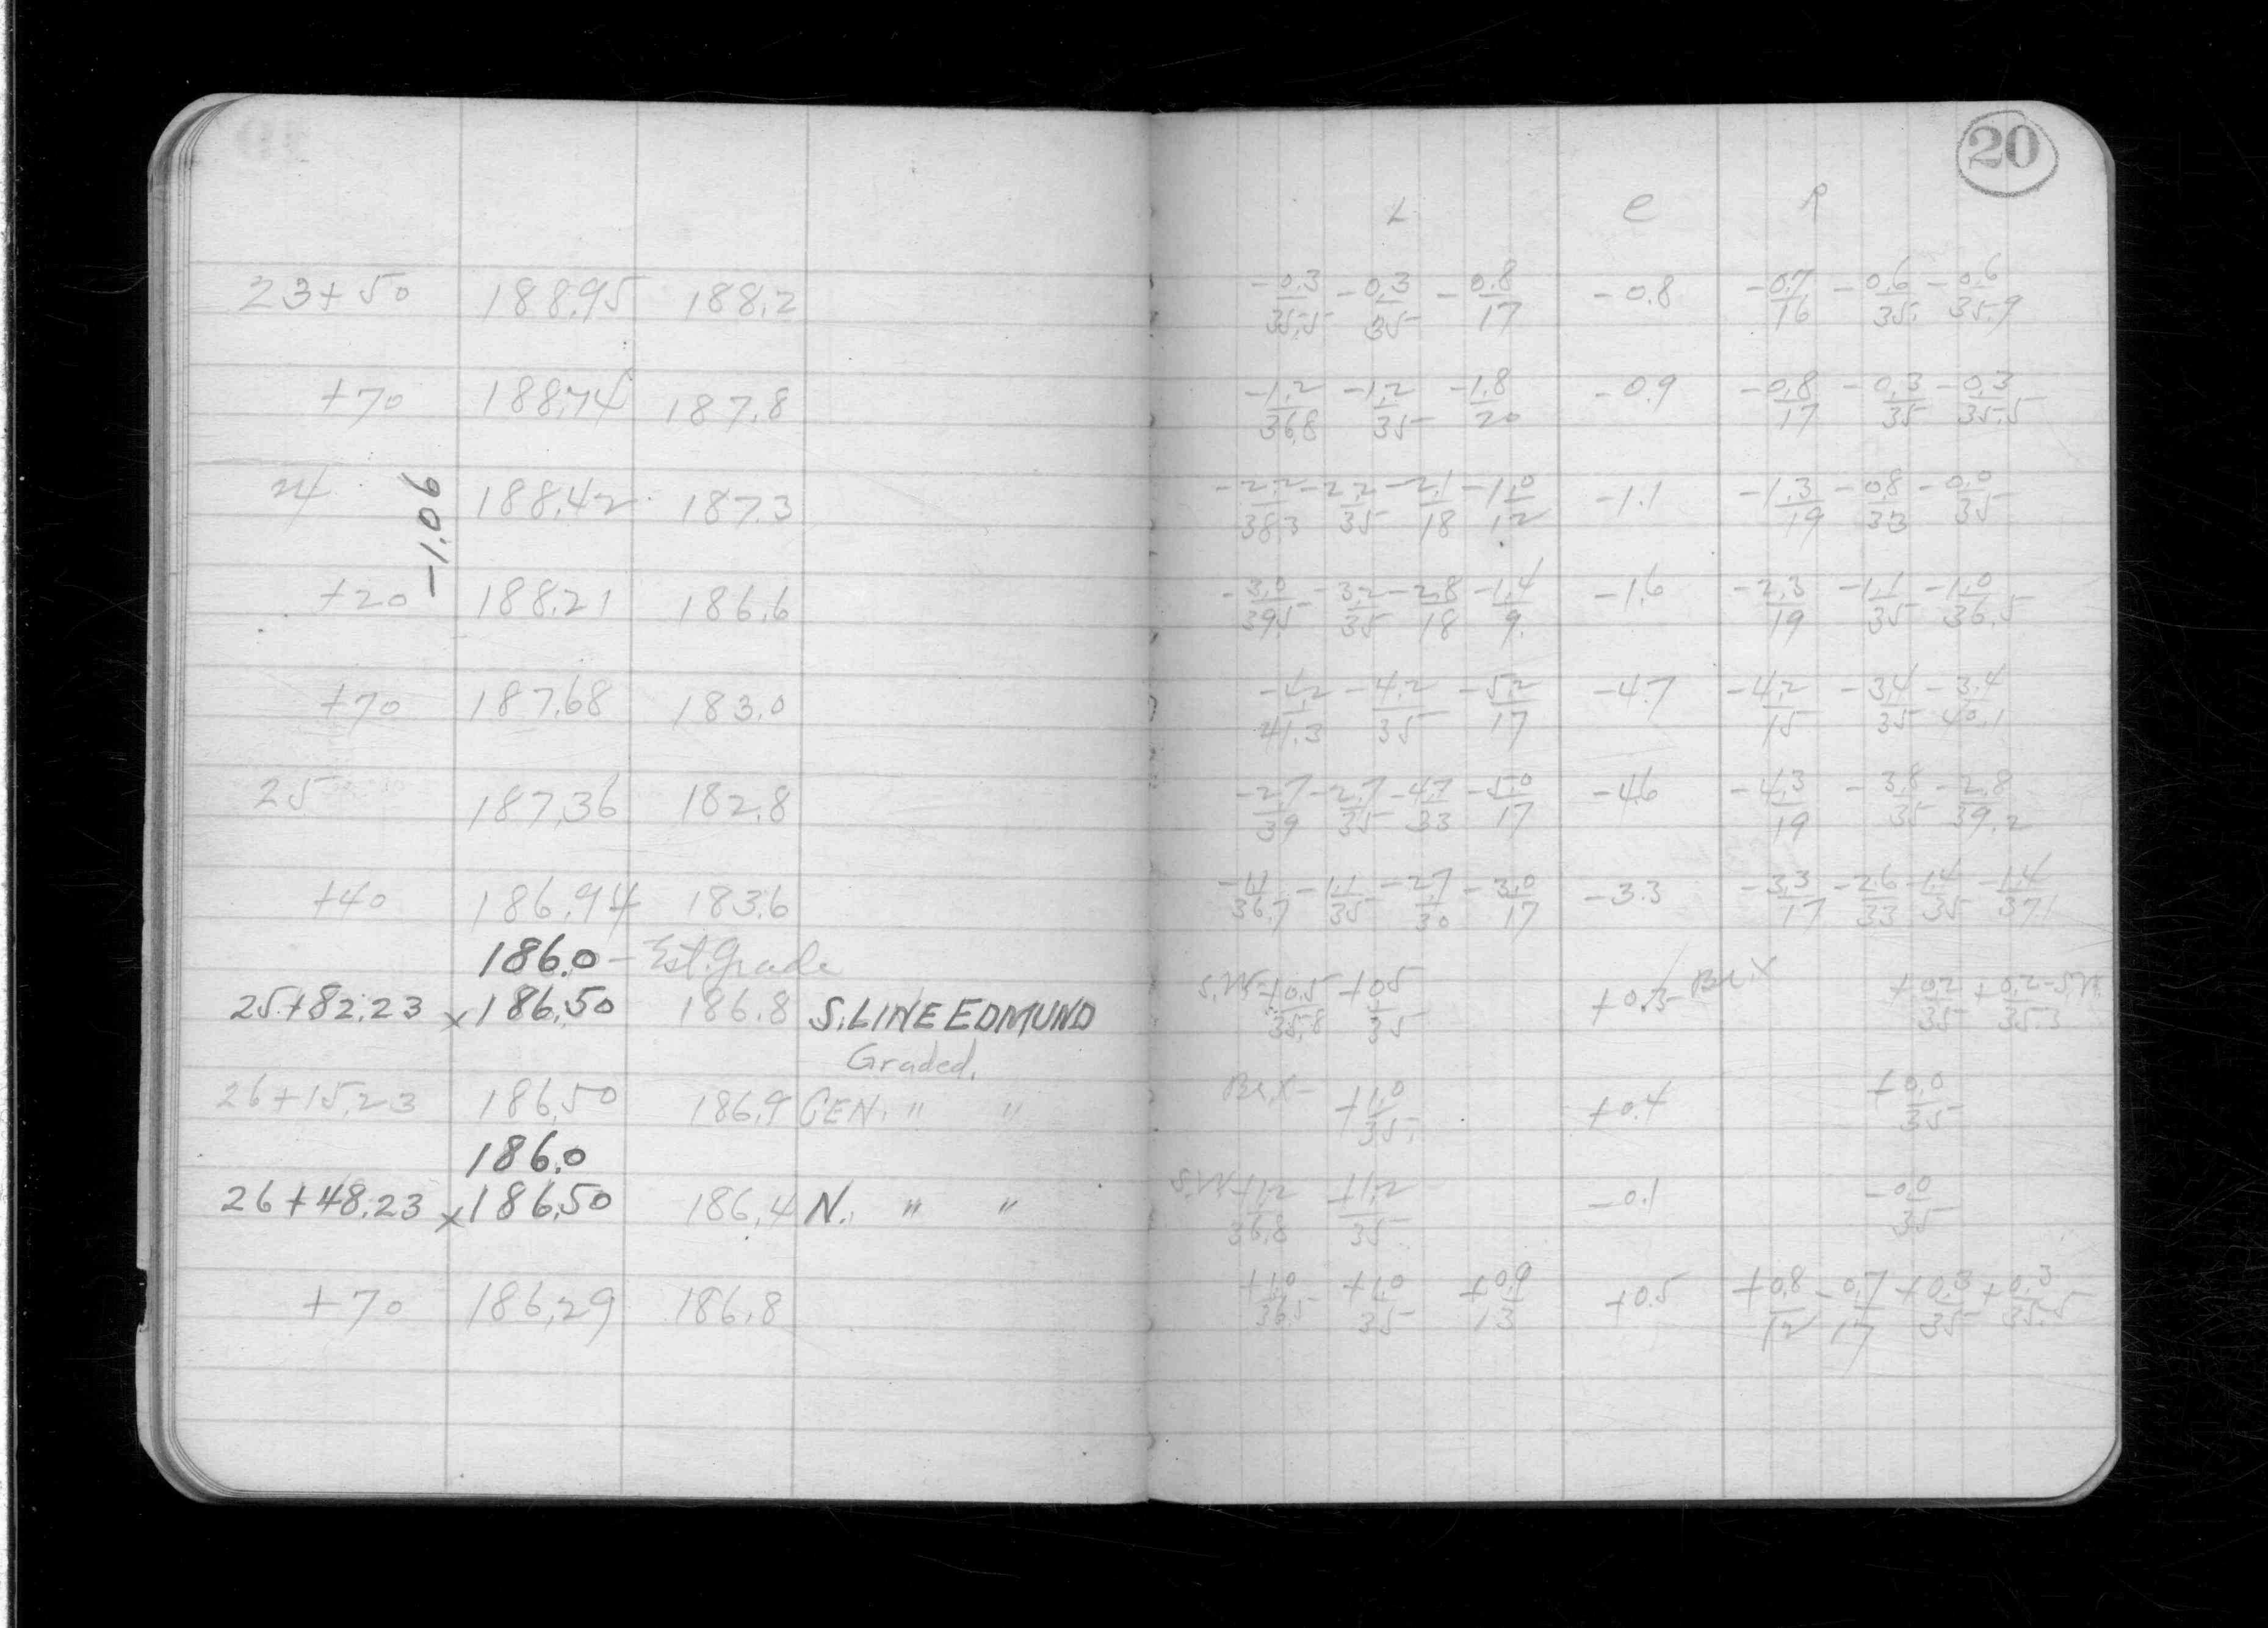 20
L C R
23+50 188.95 188.2 -0.3/35.5 -0.3/35 -0.8/17 -0.8 -0.7/16 -0.6/35 -0.6/35.9
+70 188.74 187.8 -1.2/36.8 -1.2/35 -1.8/20 -0.9 -0.8/17 -0.3/35 -0.3/35.5
24 188.42 187.3 -2.2/38.3 -2.2/35 -2.1/18 -1.0/12 -1.1 -1.3/19 -0.8/33 -0.0/35
-1.06
+20 188.21 186.6 -3.0/39.5 -3.2/35 -2.8/18 -1.4/9 -1.6 -2.3/19 -1.1/35 -1.0/36.5
+70 187.68 183.0 -4.2/41.3 -4.2/35 -5.2/17 -4.7 -4.2/15 -3.4/35 -3.4/40.1
25 187.36 182.8 -2.7/39 -2.7/35 -4.7/33 -5.0/17 -4.6 -4.3/19 -3.8/35 -2.8/39.2
+40 186.94 183.6 -1.1/36.7 -1.1/35 -2.7/30 -3.0/17 -3.3 -3.3/17 -2.6/33 -1.4/35 -1.4/37.1
186.0 - Est. Grade
25+82.23 x186.50 186.8 S. LINE EDMUND S.W. +0.5/35.8 +0.5/35 +0.3 +0.2/35 +0.2/35.3 - S.W.
Graded.
26+15.23 186.50 186.9 CEN. " " +1.0/35 +0.4 +0.0/35
186.0
26+48.23 x186.50 186.4 N. " " S.W. +1.2/36.8 +1.2/35 -0.1 -0.0/35
+70 186.29 186.8 +1.0/36.5 +1.0/35 +0.9/13 +0.5 +0.8/12 -0.7/17 +0.3/35 +0.3/35.5